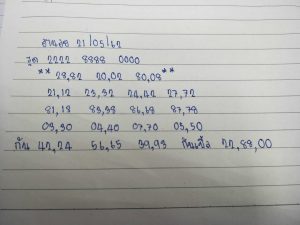 ฮานอย 21/05/62
รูด 2222 8888 0000
** 28,82 20,02 80,08 **
21,12 23,32 24,42 27,72
81,18 83,38 86,68 87,78
03,30 04,40 07,70 05,50
กัน 42,24 56,65 39,93 กันเบิ้ล 22,88,00